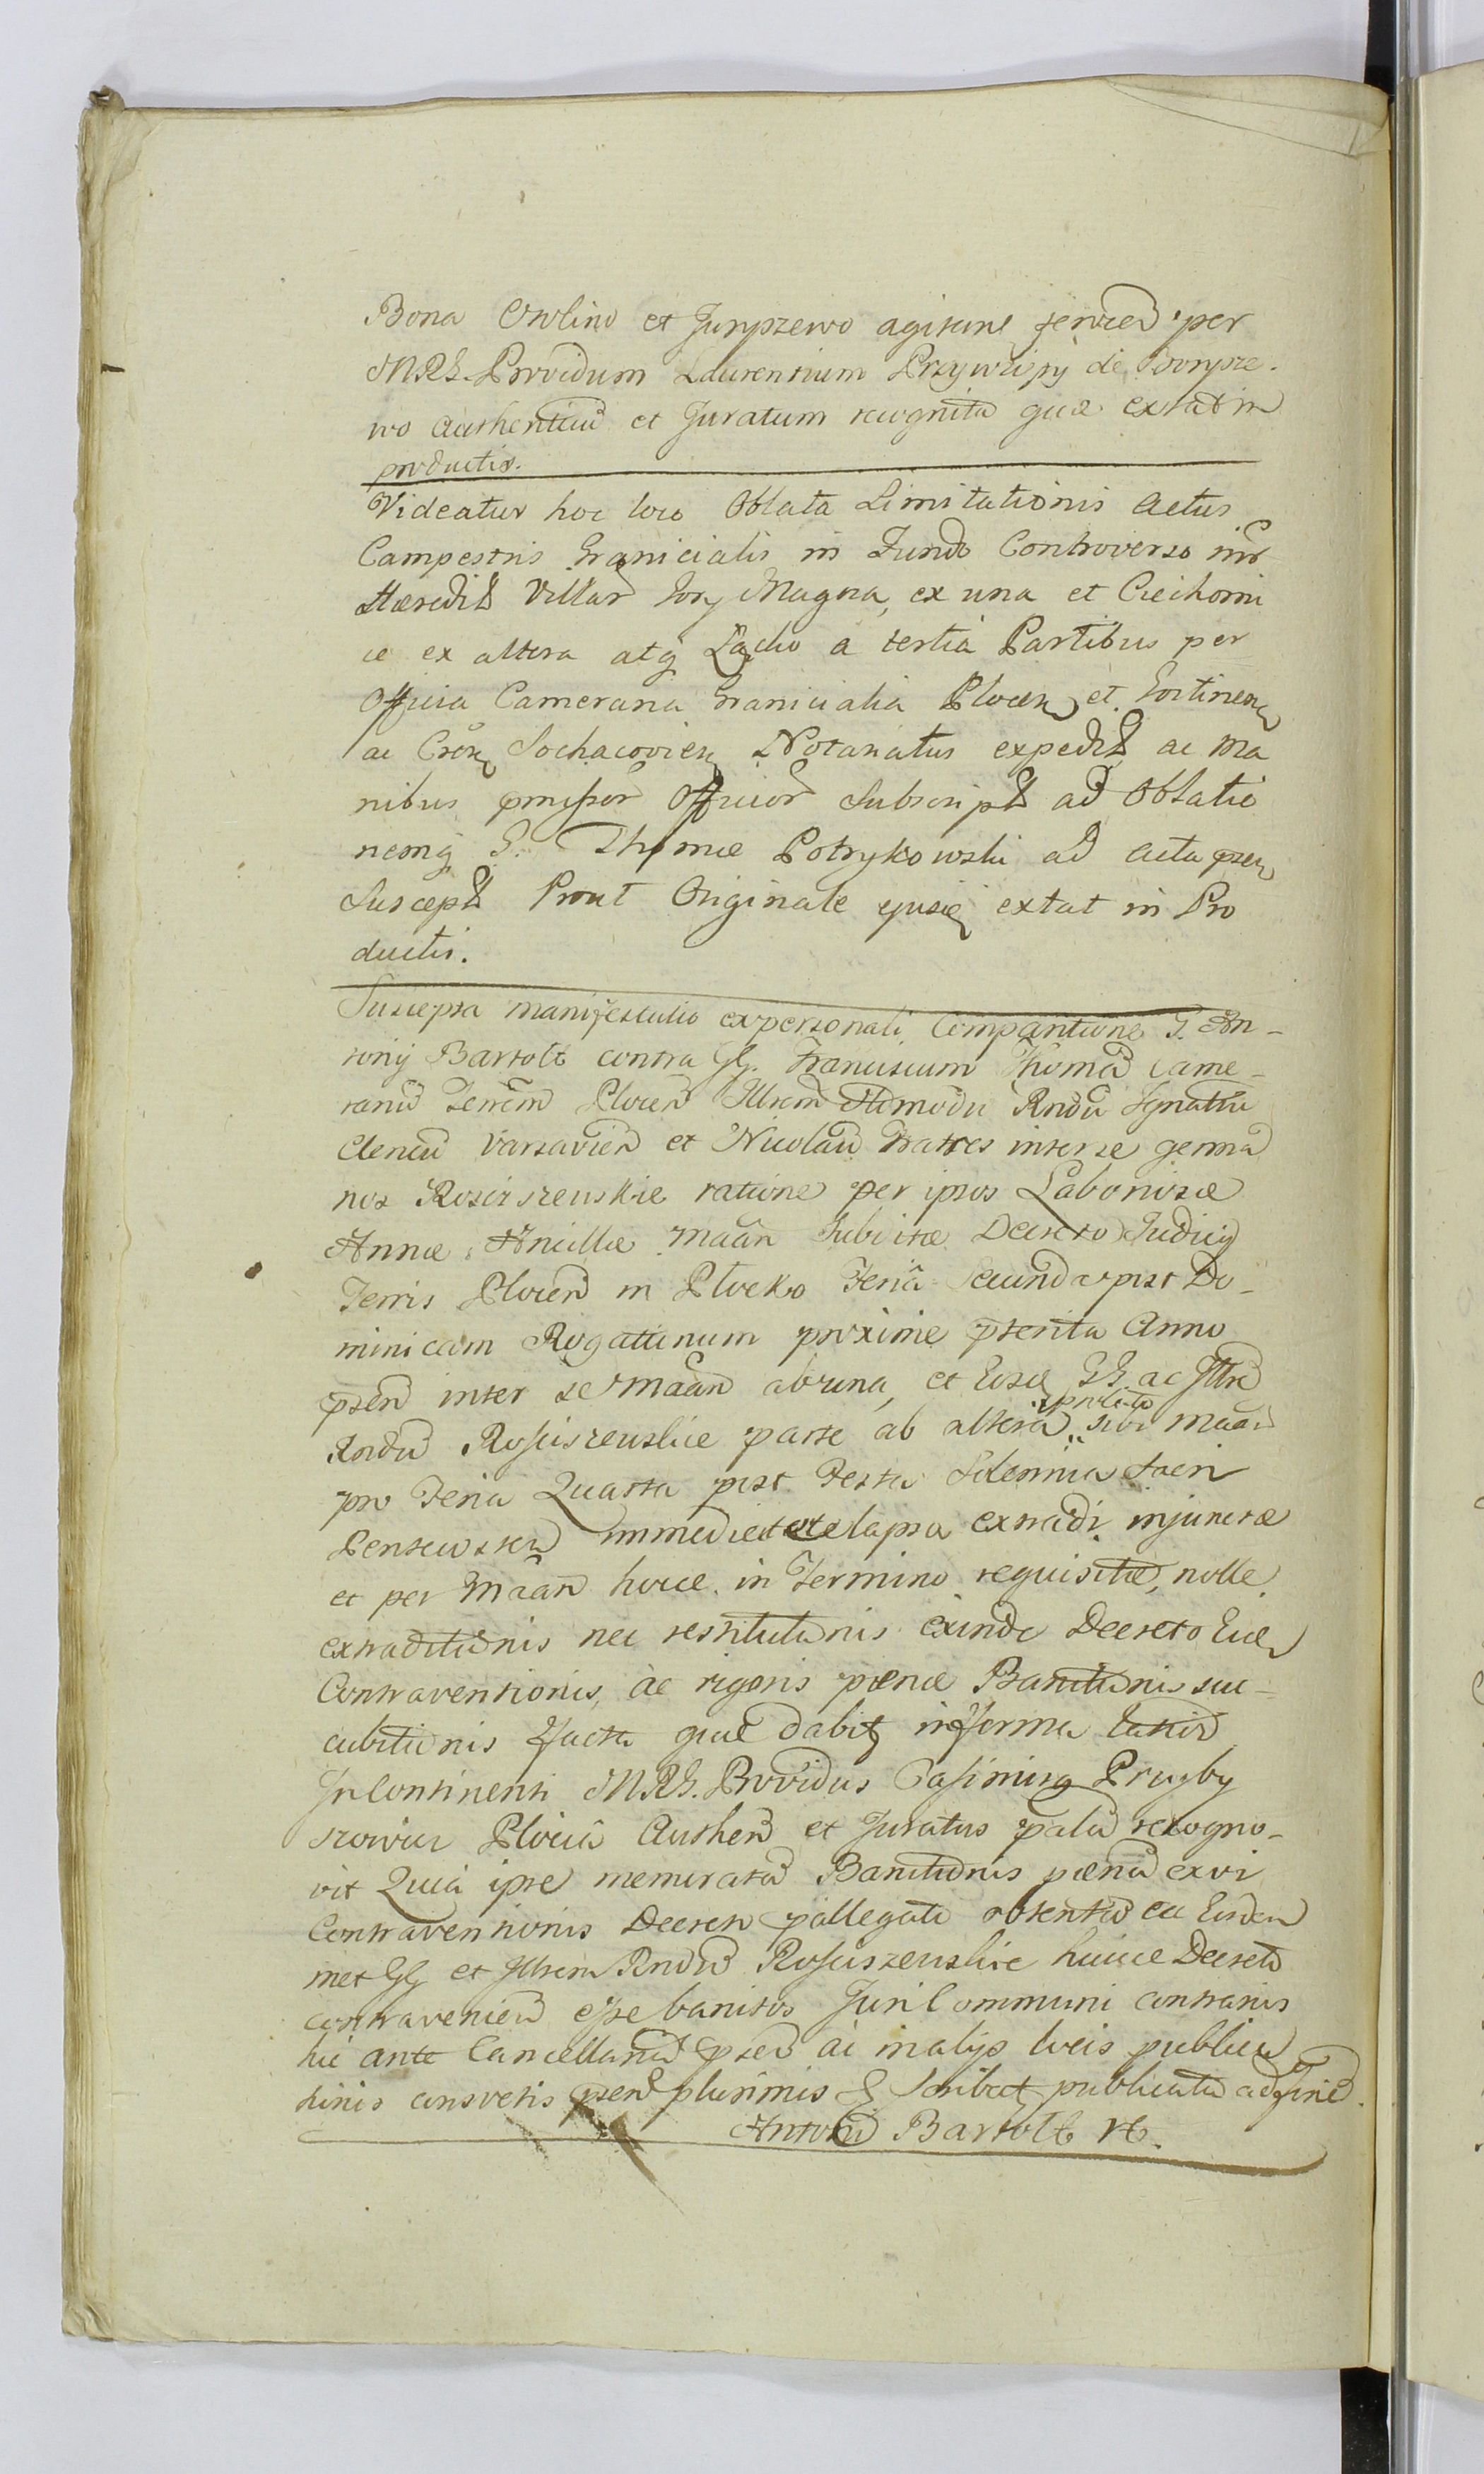 Bona Orolino et Juryszewo agitanẽ ferẽd per
MRS. Providum Laurentium Przywipij de Jurysze-
wo authenticũ et Juratum recognita quæ extat in
productis.
Videatur hoc loco Oblata Limitationis Actus
Campestris Granicialis in Fundo Controverso intr
Hæredit Villar Gory Magna, ex una et Ciechomi
ce ex altera atq Lącko a tertia Partibus per
Officia Camerana Granicialia Plocen et Gostinen
ac Cren Sochacovien Notariatus expedit ac ma
nibus pmissor Officior Subscript ad Oblatio
nemq G. Thomæ Potrykowski ad acta psen
Suscept Prout Originale ejusd extat in Pro
ductis.
Suscepta manifestatio ex personali Comparitione G. An-
tonij Bartolt contra GG. Franciscum Thomã Came-
rariũ Terrẽm Plocen Illrem Admodũ Rndũ Ignatiũ
Clericũ Varsavien et Nicolaũ Fratres inter se germa
nos Rosciszewskie ratione per ipsos Laboriosæ
Annæ Ancillæ Maan Subditæ Decreto Judicij
Terris Plocen in Plocko Feria Secunda post Do-
minicam Rogationum proxime pterita Anno
psen inter se Maan ab una, et Eosd GG. ac Illre
Rndũ Rosciszewskie parte ab altera, sibi Maan
pro Feria Quarta post Festa Solennia Sacri
Pentecosten immediate elapsa extradi injunctæ
et per Maan hocce in Termino requisitæ, nolle
extraditionis nec restitutionis exinde Decreto Eid
Contraventionis, ac rigoris pœnæ Banitionis suc-
cubitionis facta quæ dabit in forma latior
In Continenti MRS. Providus Casimirg Przyby
szowicz Plociâ Authen et Juratus palã recogno-
vit Quia ipse memoratã Banitionis pœnã ex vi
Contraventionis Decreti pallegati obtentũ ea Eosdem
met GG et Illrem Rndũ Rosciszewskie huicce Decreto
contravenien esse banitos Juri Communi contrarios
hic ante Cancellariã psen ac in alijs locis publicis
hinis consvetis psen plurimis & Scribat publicata ad fine
Antoni Bartolt